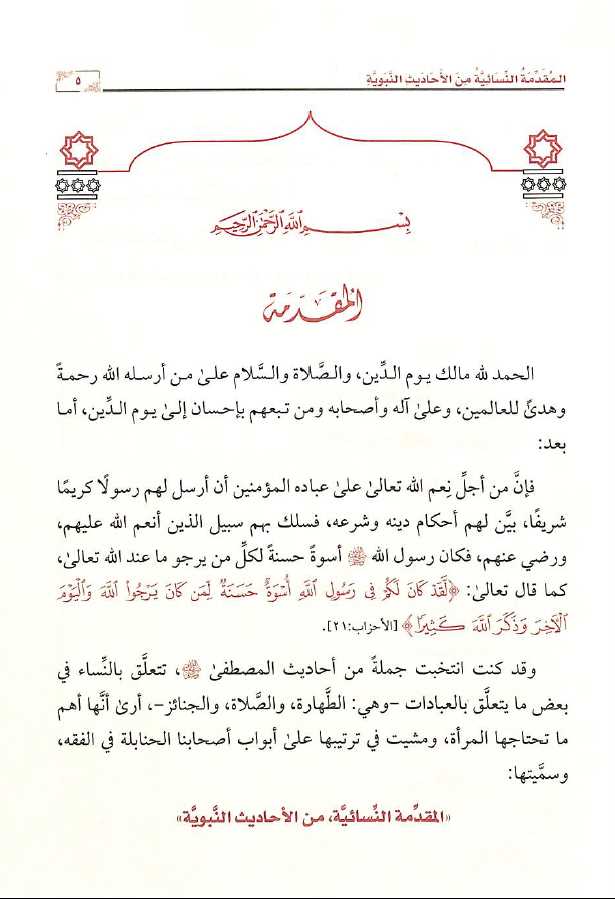 المُقَدِّمَةُ النِّسَائِيَّةُ مِنَ الأَحَادِيثِ النَّبَوِيَّةِ
٥
بِسْمِ اللَّهِ الرَّحْمَٰنِ الرَّحِيمِ
المقدمة
الحمد لله مالك يوم الدِّين، والصَّلاة والسَّلام علىٰ من أرسله الله رحمةً
وهدىً للعالمين، وعلىٰ آله وأصحابه ومن تبعهم بإحسان إلىٰ يوم الدِّين، أما
بعد:
فإنَّ من أجلِّ نِعم الله تعالىٰ علىٰ عباده المؤمنين أن أرسل لهم رسولًا كريمًا
شريفًا، بيَّن لهم أحكام دينه وشرعه، فسلك بهم سبيل الذين أنعم الله عليهم،
ورضي عنهم، فكان رسول الله ﷺ أسوةً حسنةً لكلِّ من يرجو ما عند الله تعالىٰ،
كما قال تعالىٰ: ﴿لَّقَدْ كَانَ لَكُمْ فِي رَسُولِ ٱللَّهِ أُسْوَةٌ حَسَنَةٌ لِّمَن كَانَ يَرْجُوا۟ ٱللَّهَ وَٱلْيَوْمَ
ٱلْآخِرَ وَذَكَرَ ٱللَّهَ كَثِيرًا﴾ [الأحزاب:٢١].
وقد كنت انتخبت جملةً من أحاديث المصطفىٰ ﷺ، تتعلَّق بالنِّساء في
بعض ما يتعلَّق بالعبادات -وهي: الطَّهارة، والصَّلاة، والجنائز-، أرىٰ أنَّها أهم
ما تحتاجها المرأة، ومشيت في ترتيبها علىٰ أبواب أصحابنا الحنابلة في الفقه،
وسمَّيتها:
«المقدِّمة النِّسائيَّة، من الأحاديث النَّبويَّة»